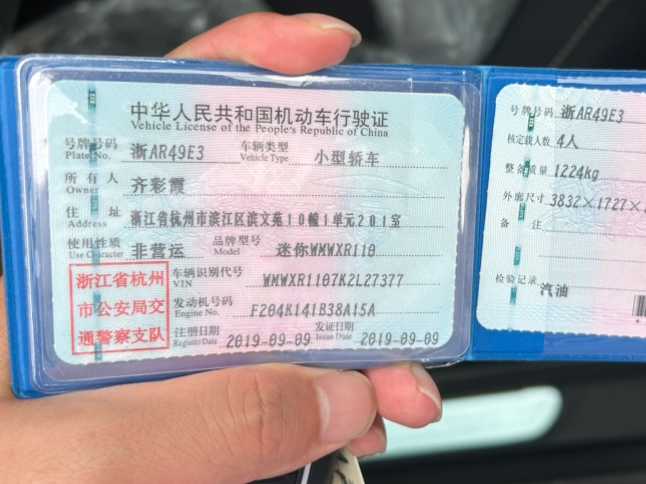 中华人民共和国机动车行驶证
Vehicle License of the People's Republic of China
号牌号码 浙AR49E3 车辆类型 小型轿车
Plate No. Vehicle Type
所有人 齐彩霞
Owner
住址 浙江省杭州市滨江区滨文苑10幢1单元201室
Address
使用性质 非营运 品牌型号 迷你WMWXR110
Use Character Model
浙江省杭州
市公安局交
通警察支队
车辆识别代号 WMWXR1107K2L27377
VIN
发动机号码 F204K141B38A15A
Engine No.
注册日期 2019-09-09 发证日期 2019-09-09
Register Date Issue Date
号牌号码 浙AR49E3
核定载人数 4人
整备质量 1224kg
外廓尺寸 3832×1727×
备注
检验记录 汽油